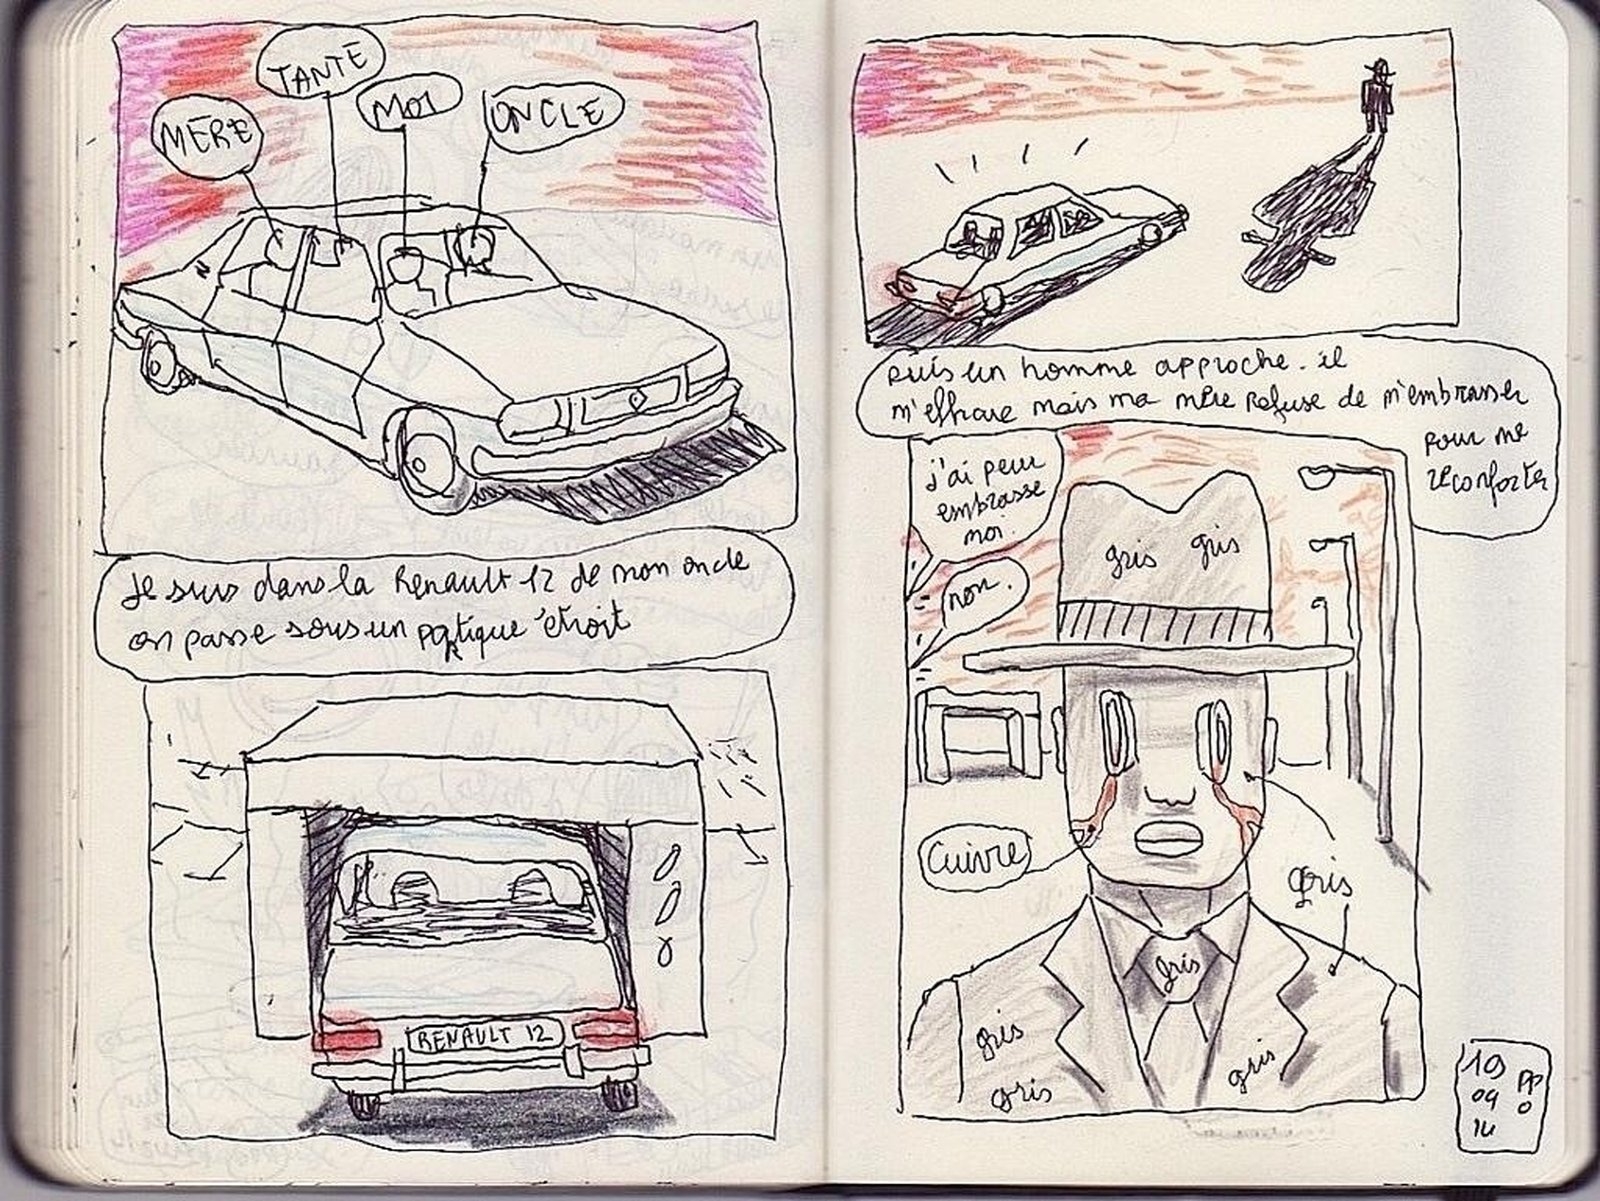 MERE
TANTE
MOI
ONCLE
Je suis dans la Renault 12 de mon oncle
on passe sous un portique étroit
RENAULT 12
puis un homme approche. il
m'effraie mais ma mère refuse de m'embrasser
pour me
réconforter
j'ai peur
embrasse
moi.
non.
gris gris
Cuivre
gris
gris
gris
gris
gris